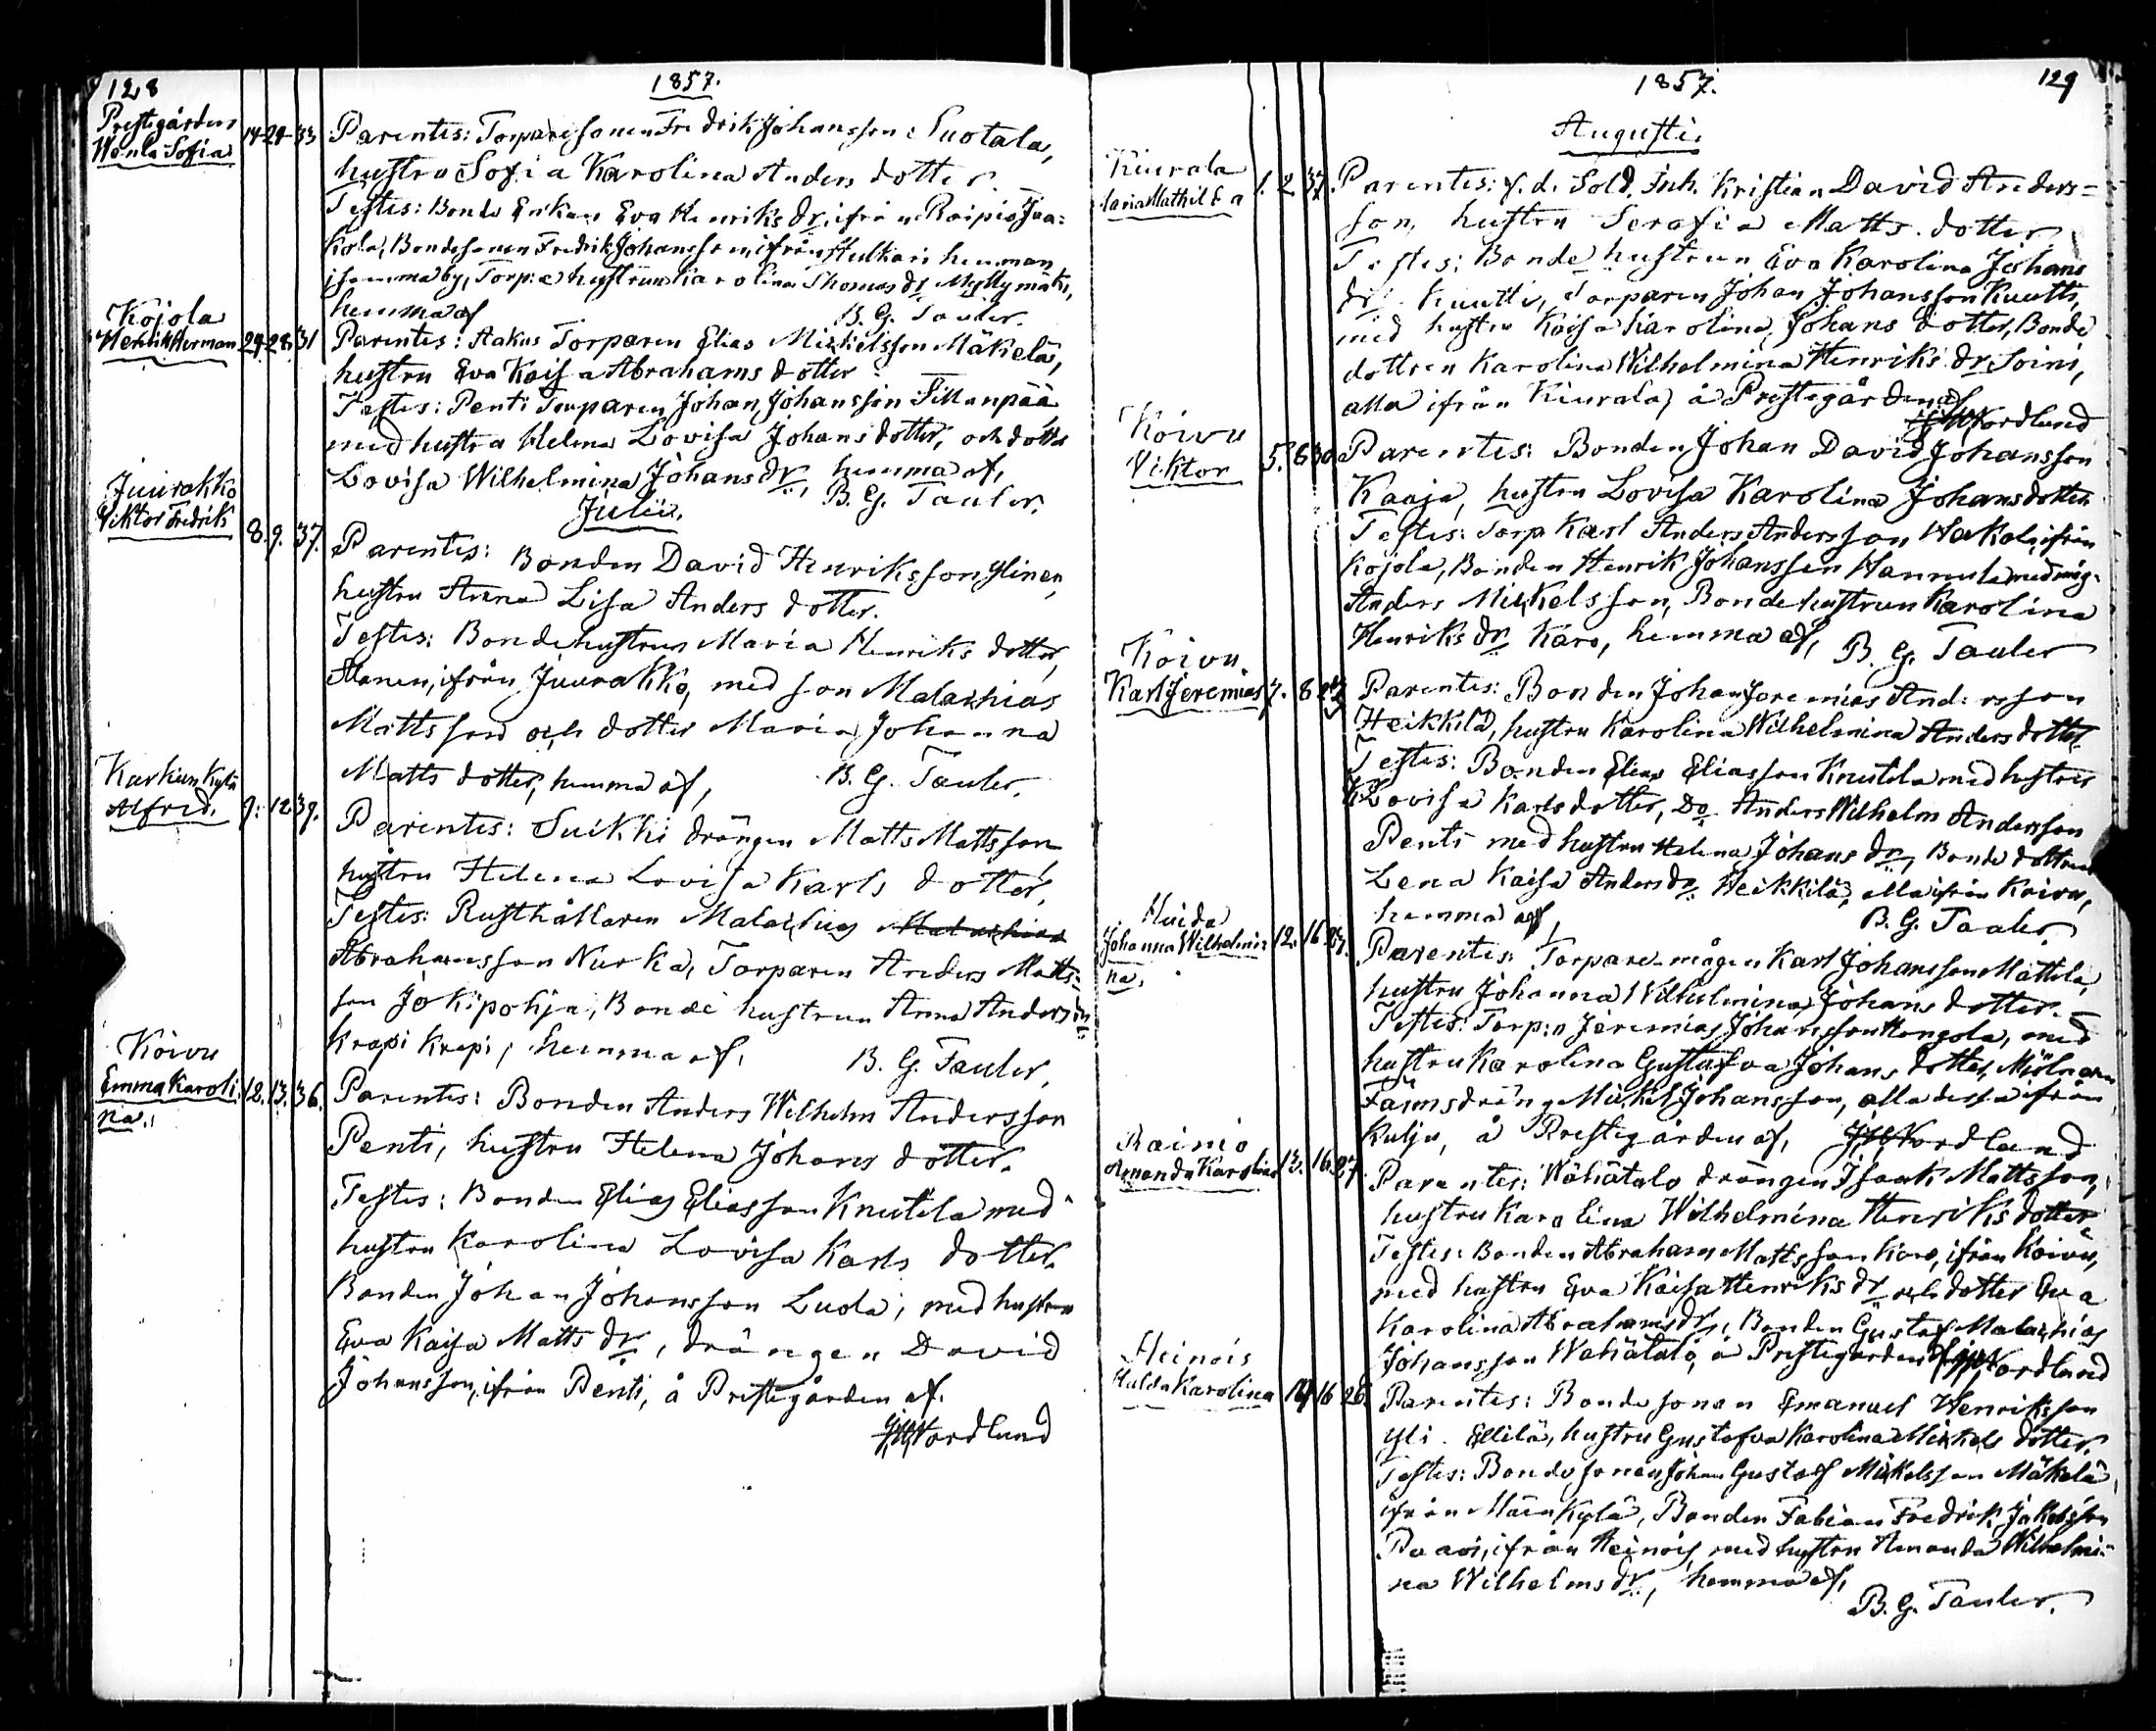 128
1857.
Prestegården
Wenla Sofia
24 28 33
Parentes: Torparesonen Fredrik Johansson Suotala,
hustru Sofia Karolina Anders dotter.
Testes: Bonde Enkan Eva Henriks dr, ifrån Raipio Jaa=
kola, Bondesonen Fredrik Johansson, ifrån Hulkari hemman
i samma by, Torp:e hustrun Karolina Thomas dr Myllymäki,
hemma af B. G. Tauler.
Kojola
Henrik Herman
24 28 31
Parentes: Aakus Torparen Elias Michelsson Mäkelä,
hustru Eva Kaisa Abrahams dotter
Testes: Penti Torparen Johan Johansson Tillunpää
med hustru Helena Lovisa Johans dotter, och dotter
Lovisa Wilhelmina Johans dr, hemma af,
B. G. Tauler.
Julii.
Juurakko
Viktor Fredrik
8. 9. 37.
Parentes: Bonden David Henriksson Ylinen,
hustru Anna Lisa Anders dotter.
Testes: Bondehustrun Maria Henriks dotter,
Alanen, ifrån Juurakko, med son Malachias
Mattsson och dotter Maria Johanna
Matts dotter, hemma af, B. G. Tauler.
Karhunkylä
Alfred.
9. 12 39.
Parentes: Suikki drängen Matts Mattsson
hustru Helena Lovisa Karls dotter,
Testes: Rusthållaren Malachias Malachias
Abrahamsson Nurka, Torparen Anders Matts=
son Jokipohja, Bonde hustrun Anna Anders dr
Krapi Krapi, hemma af, B. G. Tauler.
Koivu
Emma Karoli
na.
12. 13. 36.
Parentes: Bonden Anders Wilhelm Andersson
Penti, hustru Helena Johans dotter.
Testes: Bonden Elias Eliasson Knutila med
hustru Karolina Lovisa Karls dotter.
Bonden Johan Johansson Luola, med hustru
Eva Kaisa Matts dr, drängen David
Johansson, ifrån Penti, å Prestegården af.
Nordlund
1857.
129
Augusti.
Kiurala
Maria Mathilda
1. 2 37.
Parentes: f. d. Sold. Inh. Kristian David Anders=
son, hustru Serafia Matts dotter
Testes: Bonde hustrun Eva Karolina Johans
dr Kuutti, Torparen Johan Johansson Kuutti,
med hustru Kaisa Karolina Johans dotter, Bonde
dottren Karolina Wilhelmina Henriks dr Soini,
alla ifrån Kiurala, å Prestegården af
Nordlund
Koivu
Viktor
5. 8 30
Parentes: Bonden Johan David Johansson
Kaaja, hustru Lovisa Karolina Johansdotter
Testes: Torp Karl Anders Andersson Hakola, ifrån
Kojola, Bonden Henrik Johansson Hannula med måg.
Anders Mickelsson, Bondehustrun Karolina
Henriks dr Karo, hemma af, B. G. Tauler
Koivu.
Karl Jeremias
7. 8 27
Parentes: Bonden Johan Jeremias Andersson
Heikkilä, hustru Karolina Wilhelmina Anders dotter.
Testes: Bonden Elias Eliasson Knutila med hustru
K Lovisa Karls dotter, Do Anders Wilhelm Andersson
Penti med hustru Helena Johans dr, Bonde dottren
Lena Kaisa Anders dr Heikkilä, alla ifrån Koivu,
hemma af, B. G. Tauler.
Huida
Johanna Wilhelmi
na.
12. 16 27.
Parentes: Torpare-mågen Karl Johansson Mattila,
hustru Johanna Wilhelmina Johans dotter.
Testes: Torp:n Jeremias Johansson Hongola, med
hustru Karolina Gustafva Johans dotter, Mjölnaren
Tamsdräng Mickel Johansson, alla dessa ifrån
Kulju, å Prestegården af, Nordlund
Rainio
Amanda Karolina
13. 16. 27.
Parentes: Wähätalo drängen Isaak Mattsson,
hustru Karolina Wilhelmina Henriks dotter
Testes: Bonden Abraham Mattsson Karo, ifrån Koivu,
med hustru Eva Kaisa Henriks dr och dotter Eva
Karolina Abrahams dr, Bonden Gustaf Malachias
Johansson Wähätalo, å Prestegården af Nordlund
Heinois
Hulda Karolina
14 16 26
Parentes: Bondesonen Emanuel Henriksson
Yli. Ellilä, hustru Gustafva Karolina Mickels dotter.
Testes: Bondesonen Johan Gustaf Mickelsson Mäkelä
ifrån Mäenkylä, Bonden Fabian Fredrik Jakobsson
Paavi, ifrån Heinois, med hustru Amanda Wilhelmi-
na Wilhelms dr, hemma af,
B. G. Tauler.